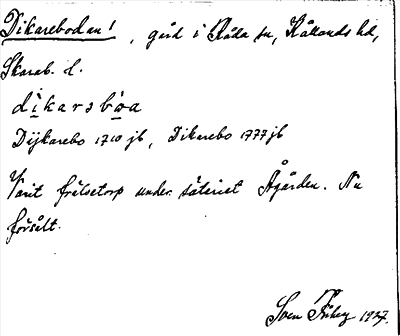 Dikarebodan! , gård i Råda sn, Kållands hd,
Skarab. l.
dikarsboa
Dijkarebo 1710 jb, Dikarebo 1777 jb
Varit frälsetorp under säteriet Ågården. Nu
försålt.
Sven 1927.